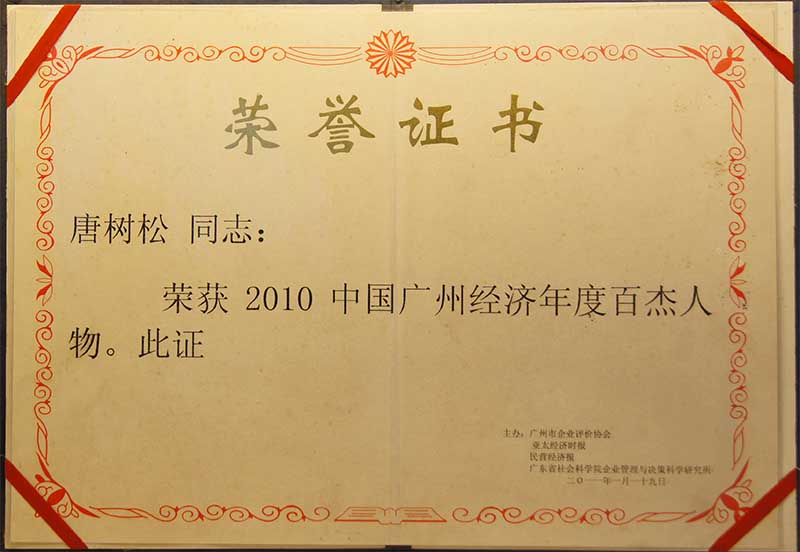 荣誉证书
唐树松 同志：
荣获 2010 中国广州经济年度百杰人
物。此证
主办：广州市企业评价协会
亚太经济时报
民营经济报
广东省社会科学院企业管理与决策科学研究所
二〇一一年一月一十九日